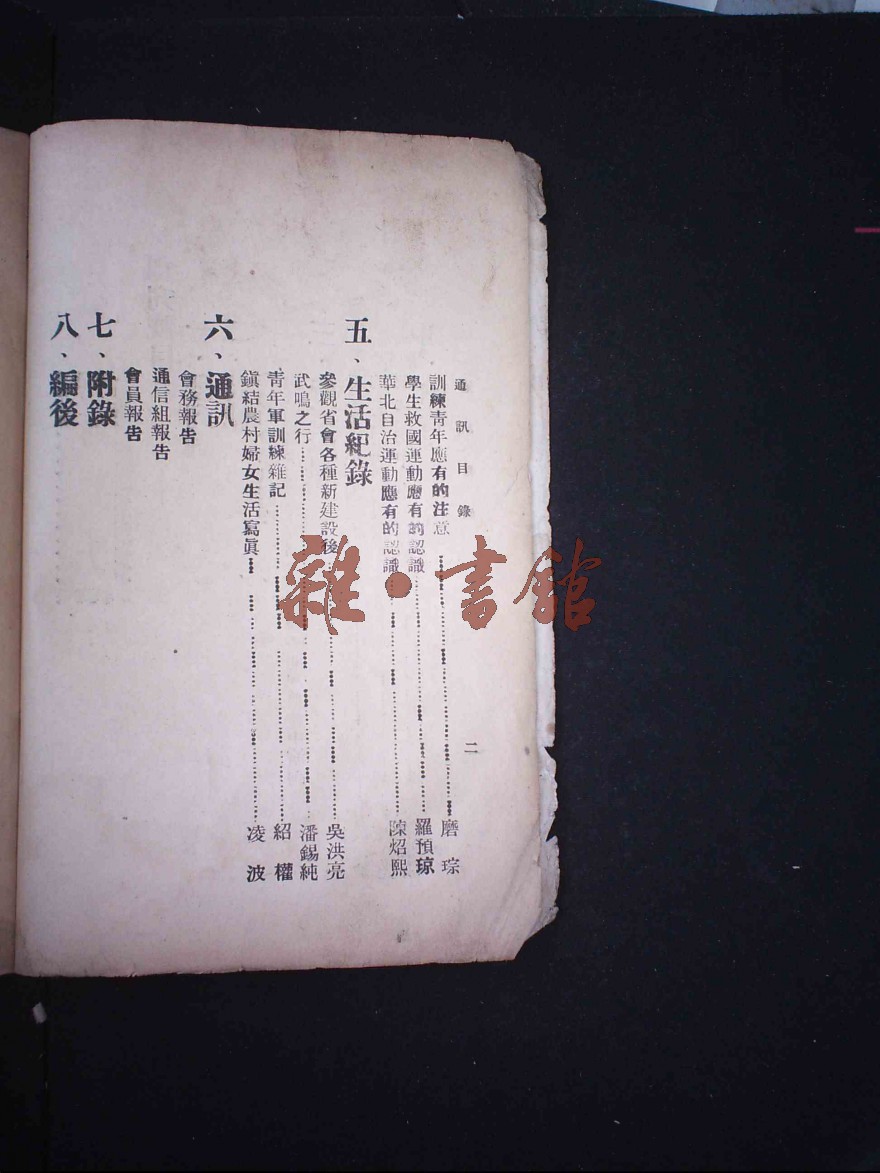 通訊目錄 二
訓練青年應有的注意 磨琮
學生救國運動應有的認識 羅預琼
華北自治運動應有的認識 陳炤熙
五、生活紀錄
參觀省會各種新建設後 吳洪亮
武鳴之行 潘錫純
青年軍訓練雜記 紹權
鎭結農村婦女生活寫眞 凌波
六、通訊
會務報告
通信組報告
會員報告
七、附錄
八、編後
雜·書館